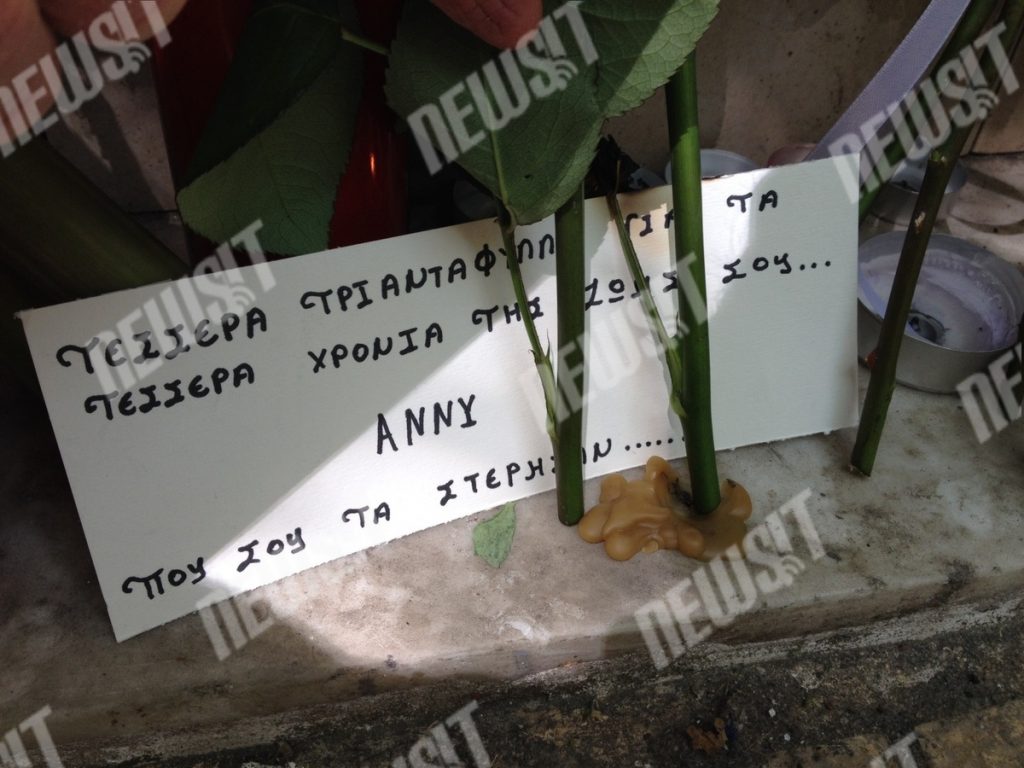 ΤΕΣΣΕΡΑ ΤΡΙΑΝΤΑΦΥΛΛ ΓΙΑ ΤΑ
ΤΕΣΣΕΡΑ ΧΡΟΝΙΑ ΤΗΣ ΖΩΗΣ ΣΟΥ...
ΑΝΝΥ
ΠΟΥ ΣΟΥ ΤΑ ΣΤΕΡΗΣΑΝ......
NEWSIT
NEWSIT
NEWSIT
NEWSIT
NEWSIT
NEWSIT
NEWSIT
NEWSIT